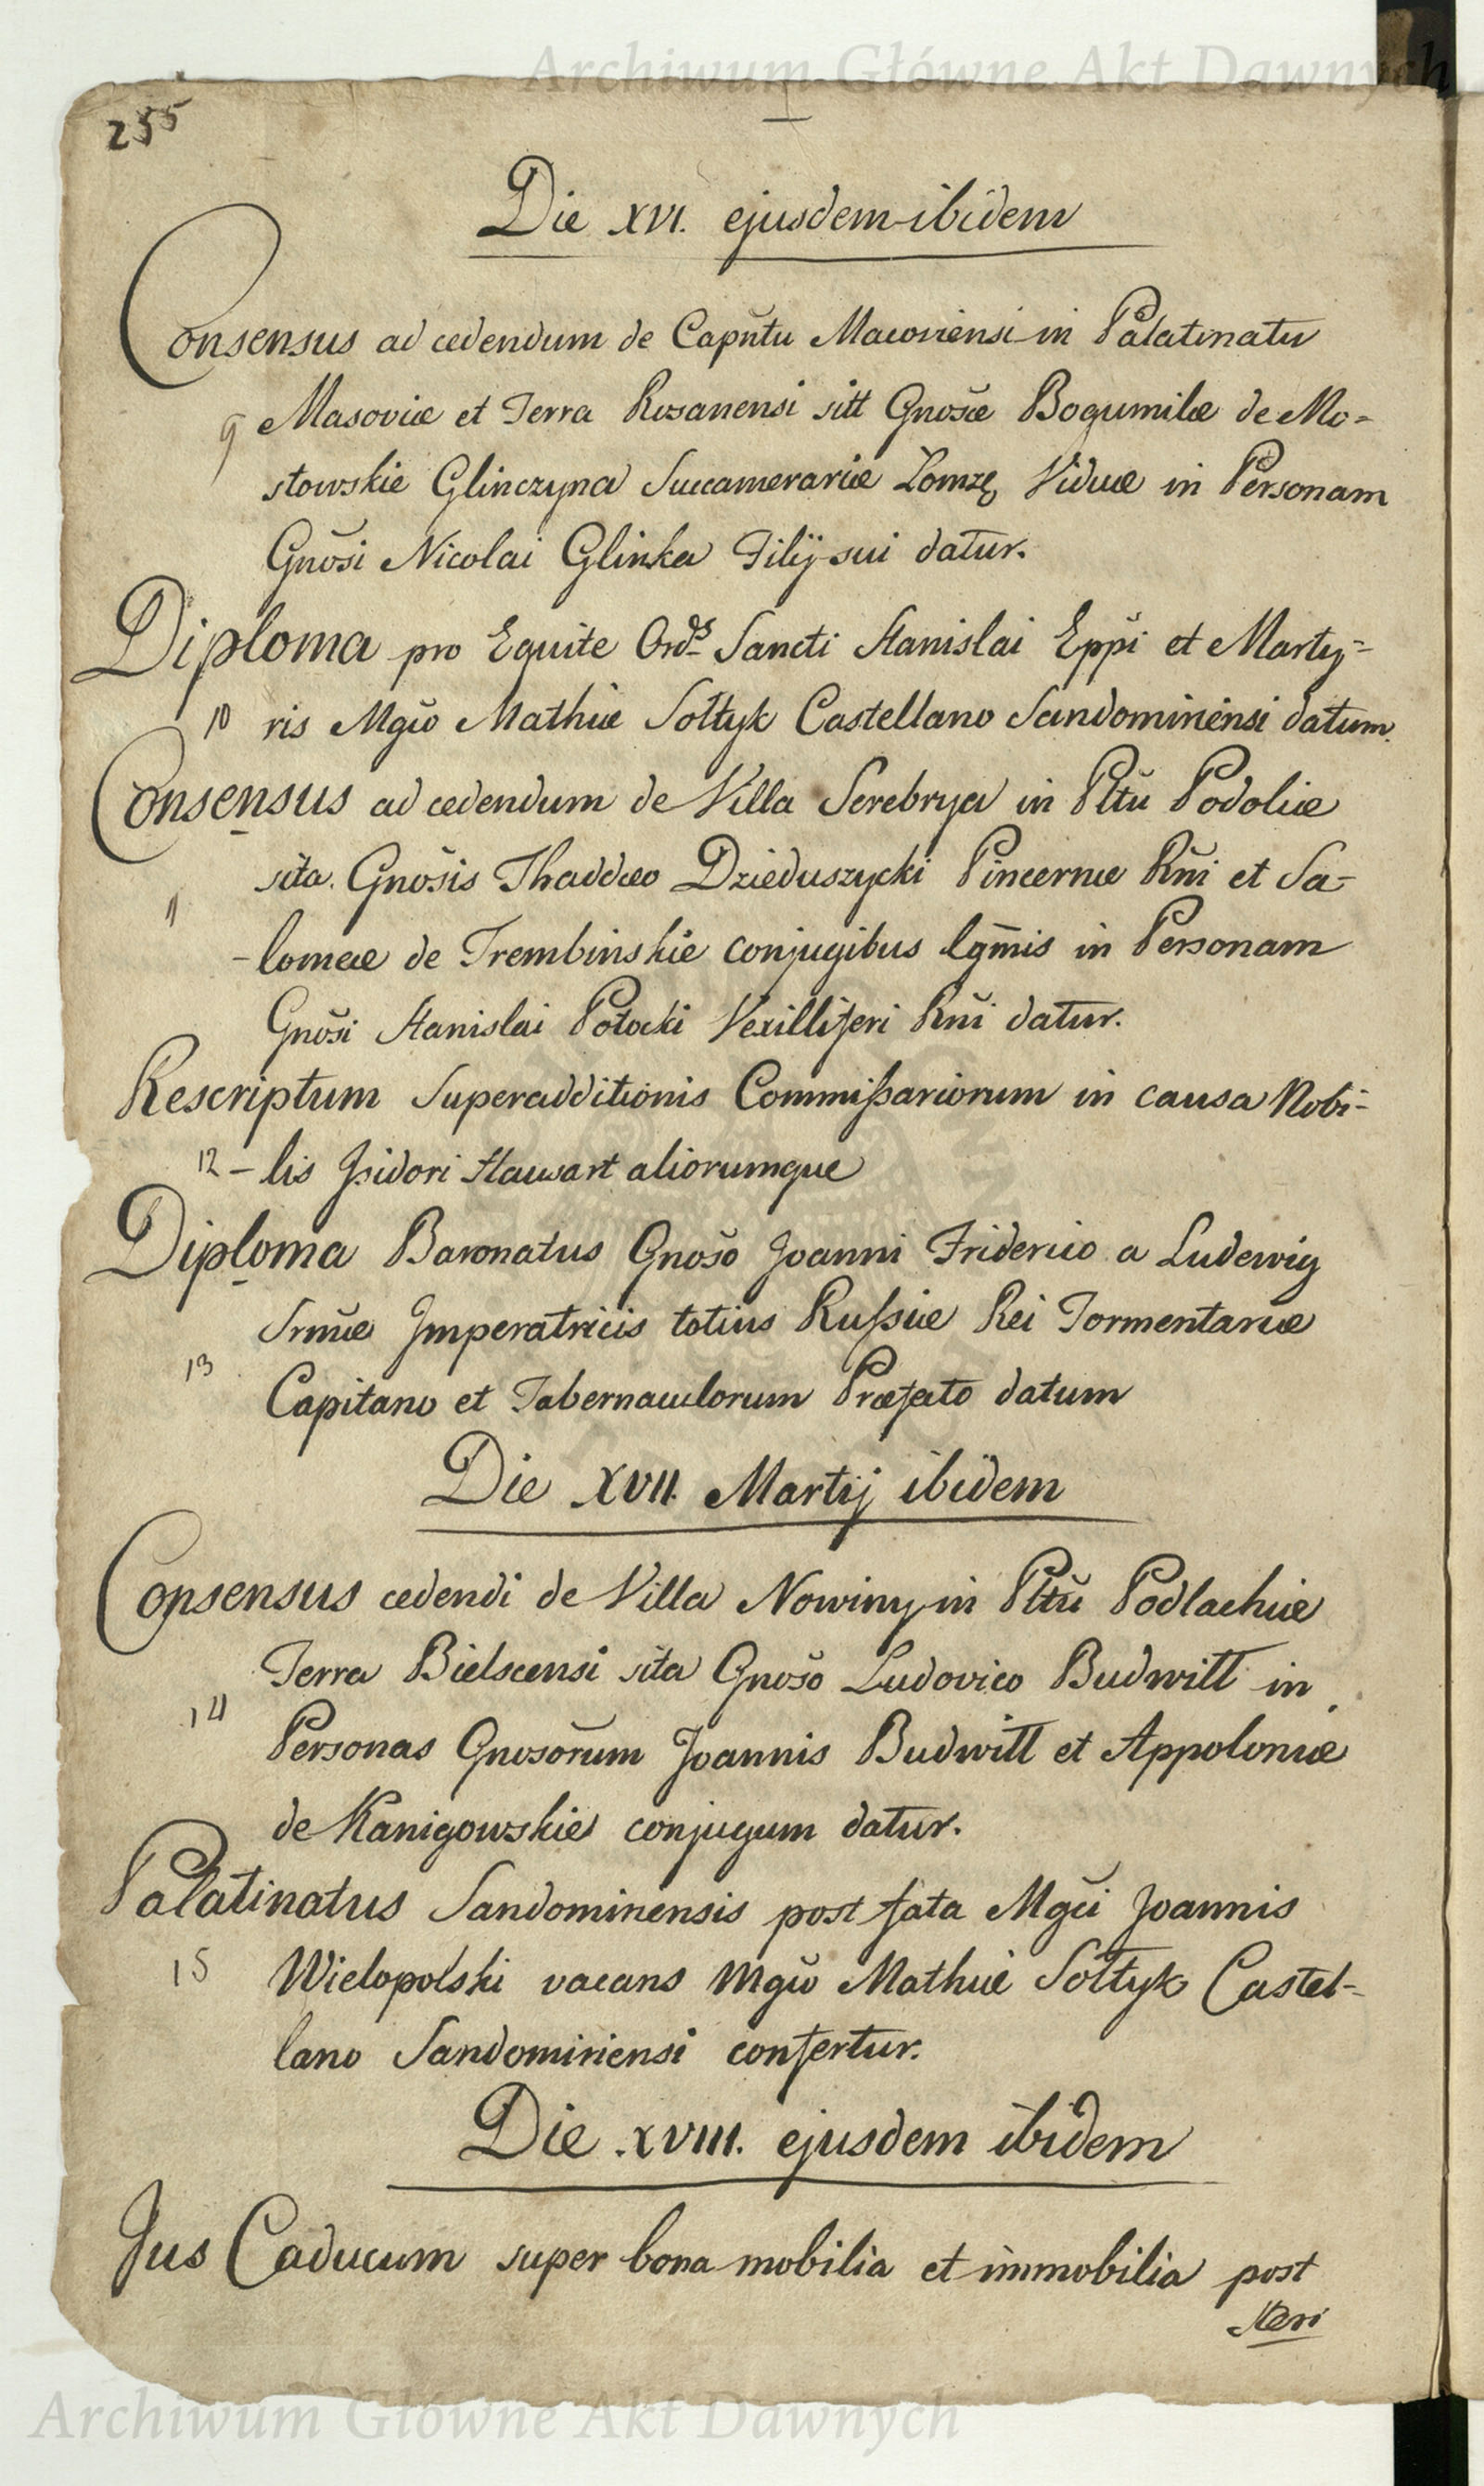 Archiwum Główne Akt Dawnych
255
Die XVI. ejusdem ibidem
Consensus ad cedendum de Capntu Macoviensi in Palatinatu
9 Masoviæ et Terra Rosanensi sitt Gnosæ Bogumilæ de Mo=
stowskie Glinczyna Succamerariæ Łomzę Viduæ in Personam
Gnosi Nicolai Glinka Filij sui datur.
Diploma pro Equite Ords Sancti Stanislai Eppi et Marty=
10 ris Mgco Mathiæ Sołtyk Castellano Sandomiriensi datum.
Consensus ad cedendum de Villa Serebrya in Pltu Podoliæ
11 sita. Gnosis Thaddæo Dzieduszycki Pincernæ Rni et Sa-
-lomeæ de Trembinskie conjugibus lgmis in Personam
Gnosi Stanislai Potocki Vexilliferi Rni datur.
Rescriptum Superadditionis Commißariorum in causa Nobi-
12 -lis Isidori Hauwart aliorumque
Diploma Baronatus Gnoso Joanni Friderico a Ludewig
Srmæ Imperatricis totius Rußiæ Rei Tormentariæ
13 Capitano et Tabernaculorum Præfecto datum
Die XVII. Martij ibidem
Consensus cedendi de Villa Nowiny in Pltu Podlachiæ
Terra Bielscensi sita Gnoso Ludovico Budwitt in
14 Personas Gnosorum Joannis Budwitt et Appoloniæ
de Kanigowskie conjugum datur.
Palatinatus Sandomiriensis post fata Mgci Joannis
15 Wielopolski vacans Mgco Mathiæ Sołtyk Castel-
lano Sandomiriensi confertur.
Die XVIII. ejusdem ibidem
Jus Caducum super bona mobilia et immobilia post
Archiwum Główne Akt Dawnych